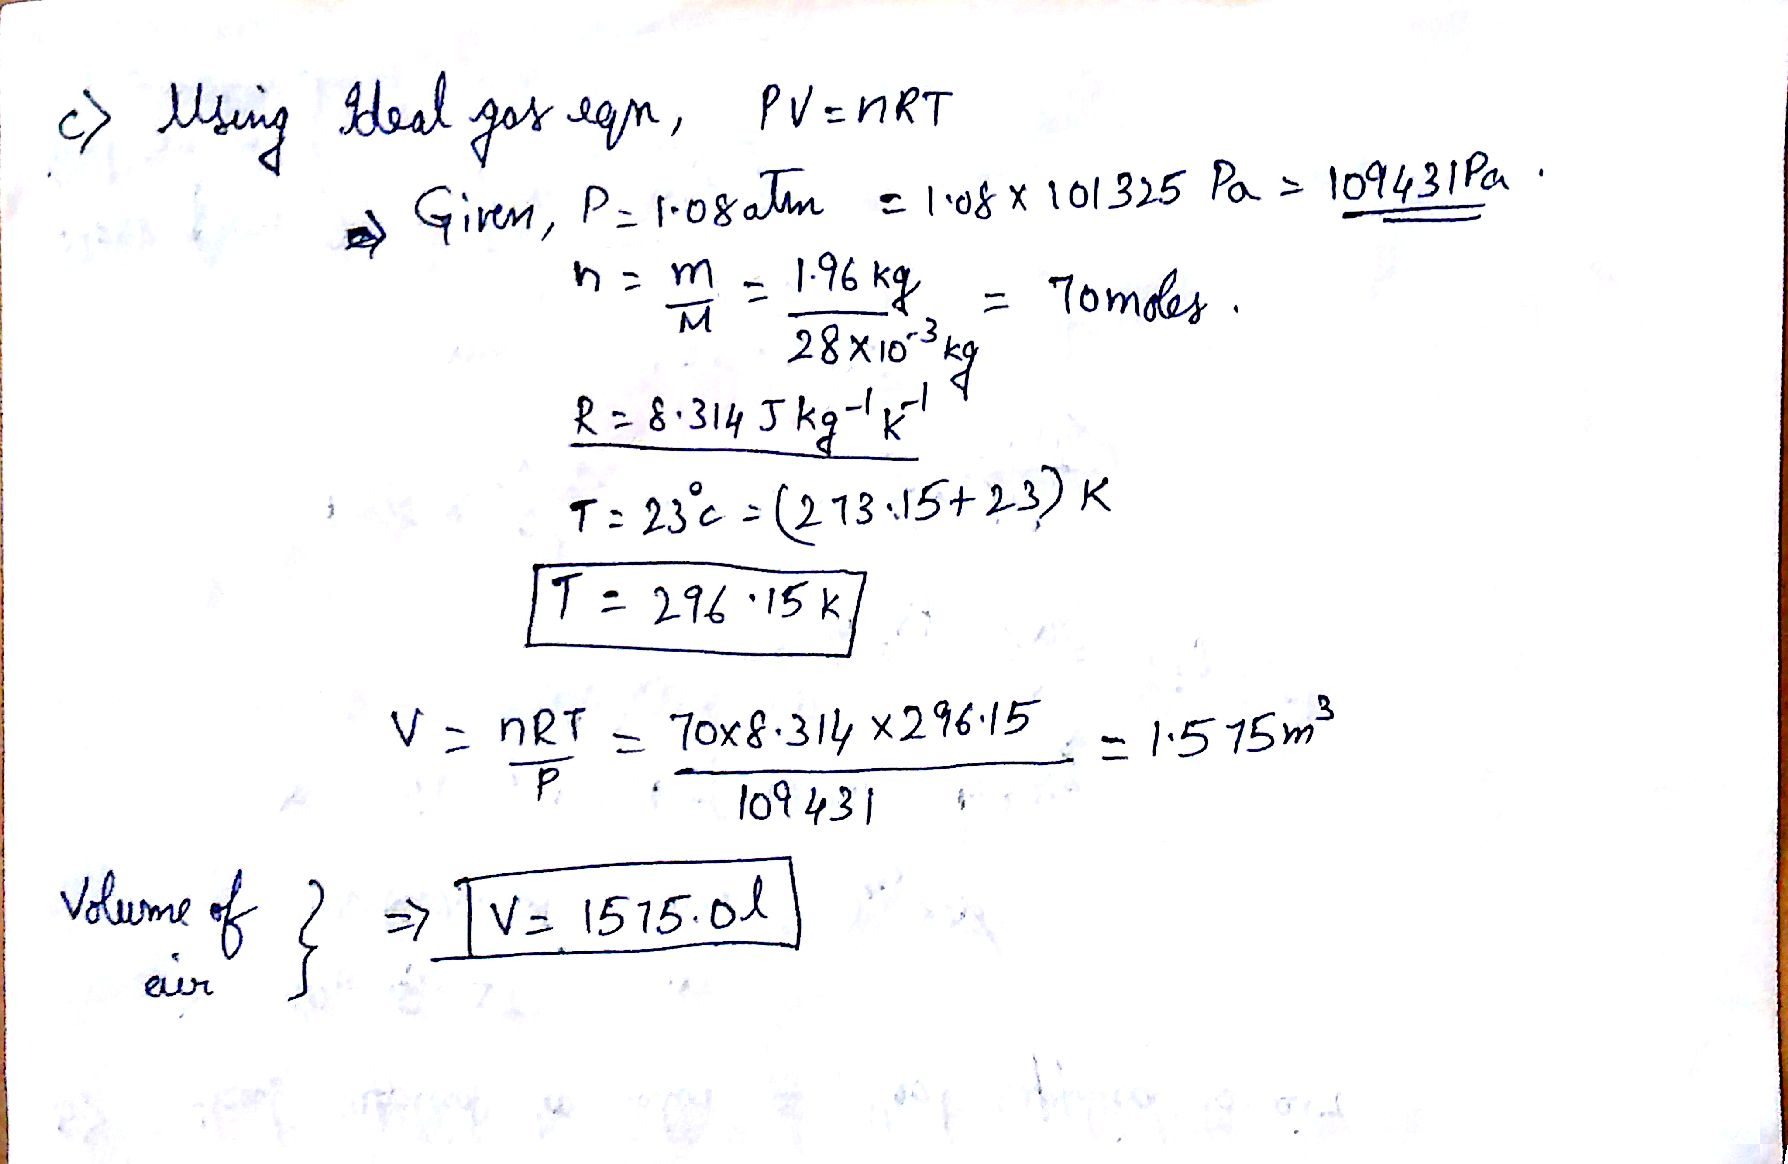 c) Using Ideal gas eqn, PV = nRT
⇒ Given, P = 1.08 atm = 1.08 x 101325 Pa = 109431 Pa.
n = m/M = 1.96 kg / 28 x 10^-3 kg = 70 moles.
R = 8.314 J kg^-1 K^-1
T = 23°C = (273.15 + 23) K
T = 296.15 K
V = nRT/P = 70x8.314 x 296.15 / 109431 = 1.575 m^3
Volume of air } ⇒ V = 1575.0 l